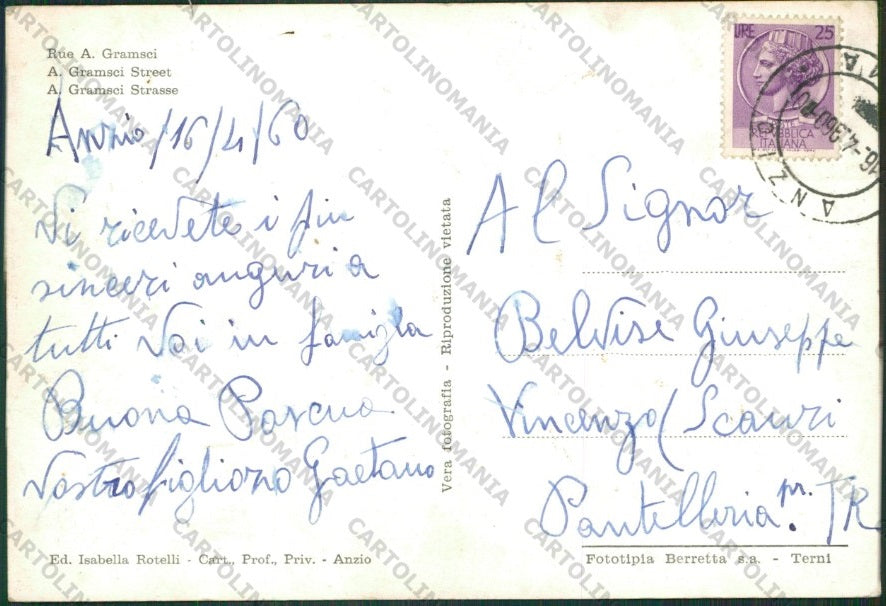 Rue A. Gramsci
A. Gramsci Street
A. Gramsci Strasse
Anzio, 16/4/60
Vi ricevete i piu
sinceri auguri a
tutti voi in famiglia
Buona Pascua
Vostro figliozo Gaetano
Ed. Isabella Rotelli - Cart., Prof., Priv. - Anzio
Vera fotografia - Riproduzione vietata
LIRE 25
REPUBBLICA
ITALIANA
ANZIO
16.-4.960
Al Signor
Belvise Giuseppe
Vincenzo (Scauri
Pantelleria. pr. TR
Fototipia Berretta s.a. - Terni
CARTOLINOMANIA